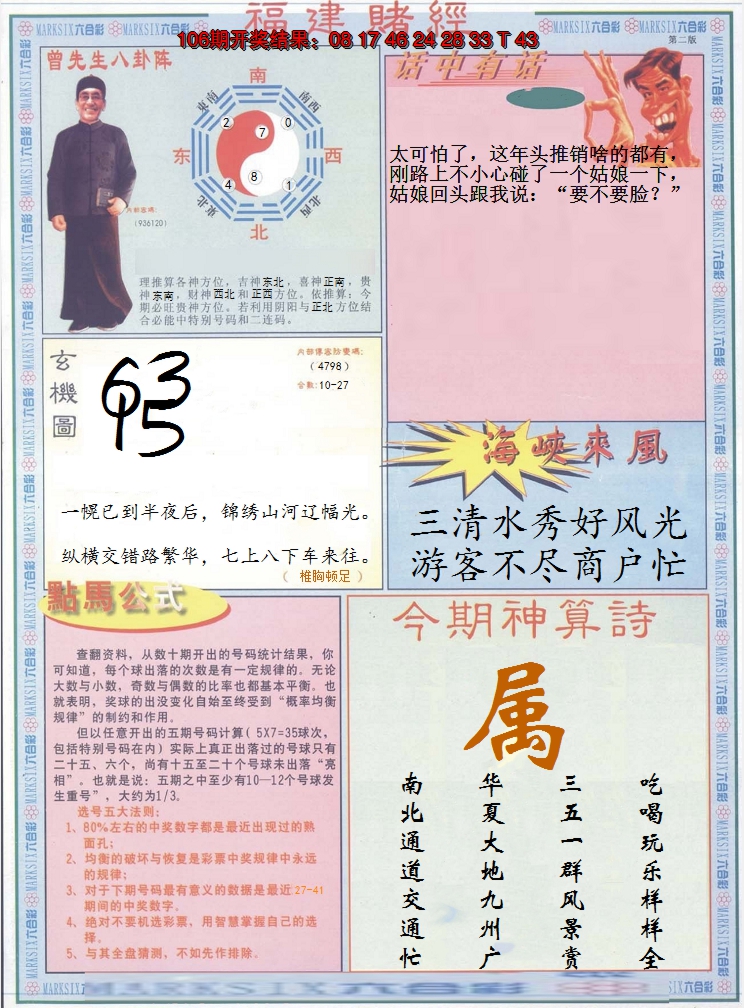 福建賭經
106期开奖结果：08 17 46 24 28 33 T 43
第二版
曾先生八卦阵
南
东南
南西
2
7
0
东
西
4
8
1
東北
北西
北
内部密碼:
(936120)
理推算各神方位，吉神东北，喜神正南，贵
神东南，财神西北和正西方位。依推算：今
期必旺贵神方位。若利用阴阳与正北方位结
合必能中特别号码和二连码。
话中有话
太可怕了，这年头推销啥的都有，
刚路上不小心碰了一个姑娘一下，
姑娘回头跟我说：“要不要脸？”
玄機圖
内部傳密防變碼:
(4798)
合数:10-27
一幌已到半夜后，锦绣山河辽幅光。
纵横交错路繁华，七上八下车来往。
（ 椎胸顿足 ）
海峽來風
三清水秀好风光
游客不尽商户忙
點馬公式
查翻资料，从数十期开出的号码统计结果，你
可知道，每个球出落的次数是有一定规律的。无论
大数与小数，奇数与偶数的比率也都基本平衡。也
就表明，奖球的出没变化自始至终受到“概率均衡
规律”的制约和作用。
但以任意开出的五期号码计算( 5X7=35球次，
包括特别号码在内) 实际上真正出落过的号球只有
二十五、六个，尚有十五至二十个号球未出落“亮
相”。也就是说：五期之中至少有10—12个号球发
生重号”，大约为1/3。
选号五大法则：
1、80%左右的中奖数字都是最近出现过的熟
面孔；
2、均衡的破坏与恢复是彩票中奖规律中永远
的规律；
3、对于下期号码最有意义的数据是最近27-41
期间的中奖数字。
4、绝对不要机选彩票，用智慧掌握自己的选
择。
5、与其全盘猜测，不如先作排除。
今期神算詩
属
南北通道交通忙
华夏大地九州广
三五一群风景赏
吃喝玩乐样样全
MARKSIX六合彩